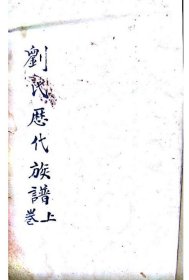 劉氏歷代族譜上卷